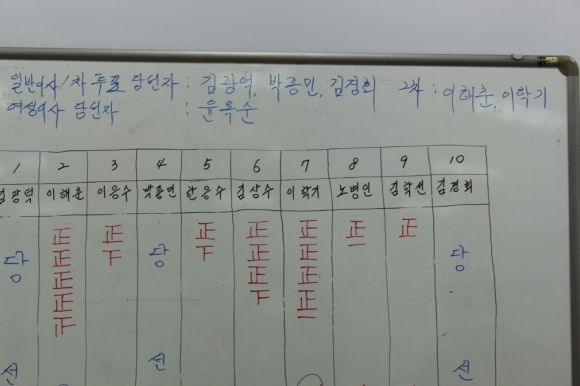 일반이사/차 투표 당선자 : 김광덕, 박종민, 김경희 2차 : 이해춘, 이학기
여성이사 당선자 : 윤옥순
1 2 3 4 5 6 7 8 9 10
김광덕 이해춘 이응수 박종민 한응수 김상수 이학기 노병인 김학선 김경희
正 正 당 正 正 正 正 正 당
正 正 正
正 正 正
正
당
선 선 선